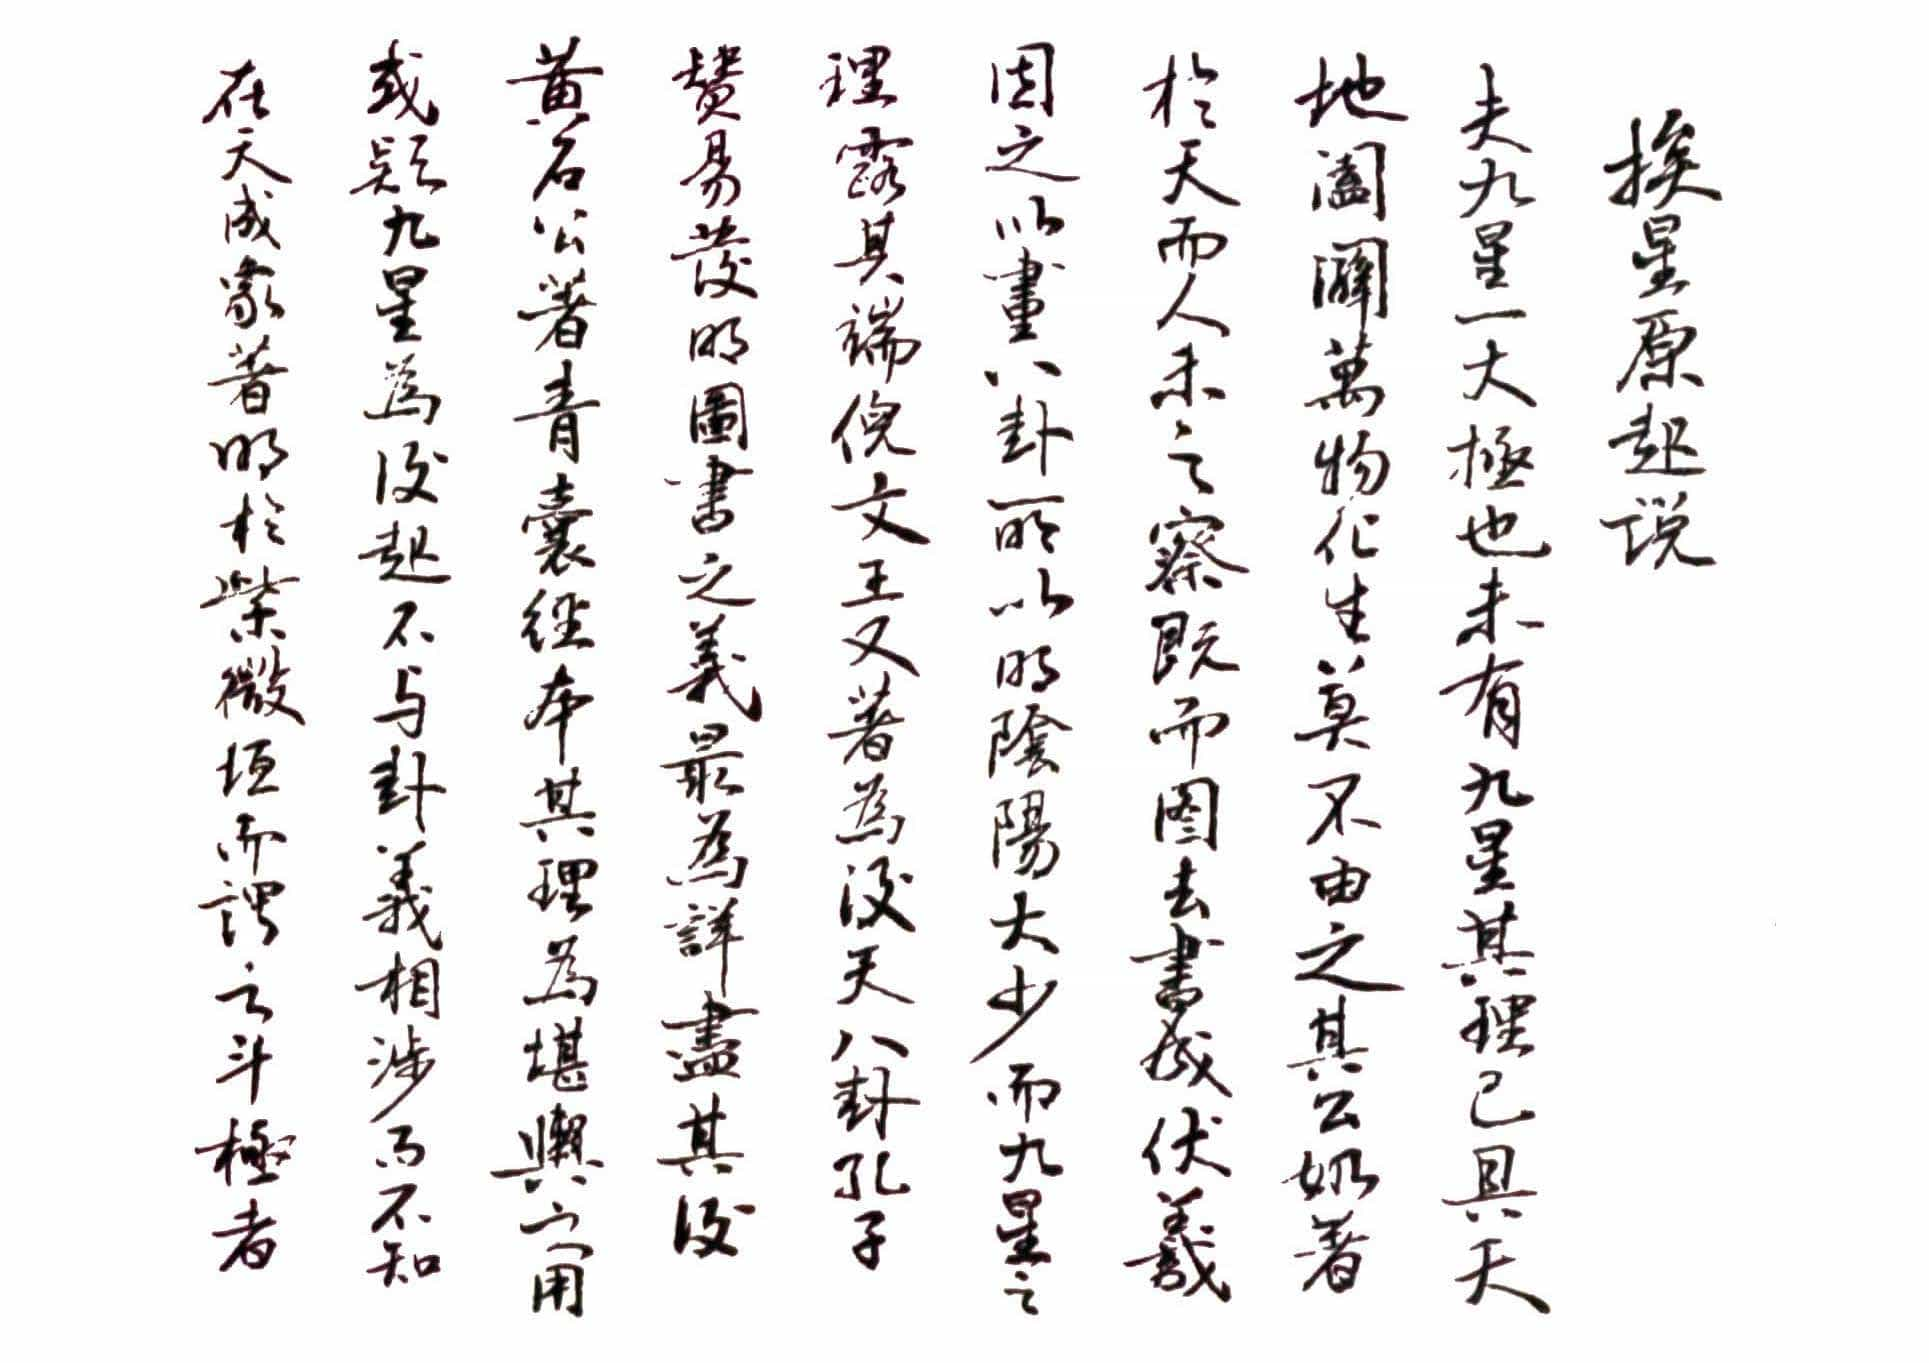 挨星原起说
夫九星一大極也未有九星其理已具天
地阖闢萬物化生莫不由之其公如著
於天而人未之察既而图去書成伏羲
因之以畫八卦所以明陰陽大少而九星之
理露其端倪文王又著為後天八卦孔子
賛易發明圖書之義最為詳盡其後
黄石公著青囊経本其理為堪輿之用
或疑九星為後起不与卦義相涉而不知
在天成象著明於紫微垣而謂之斗極者